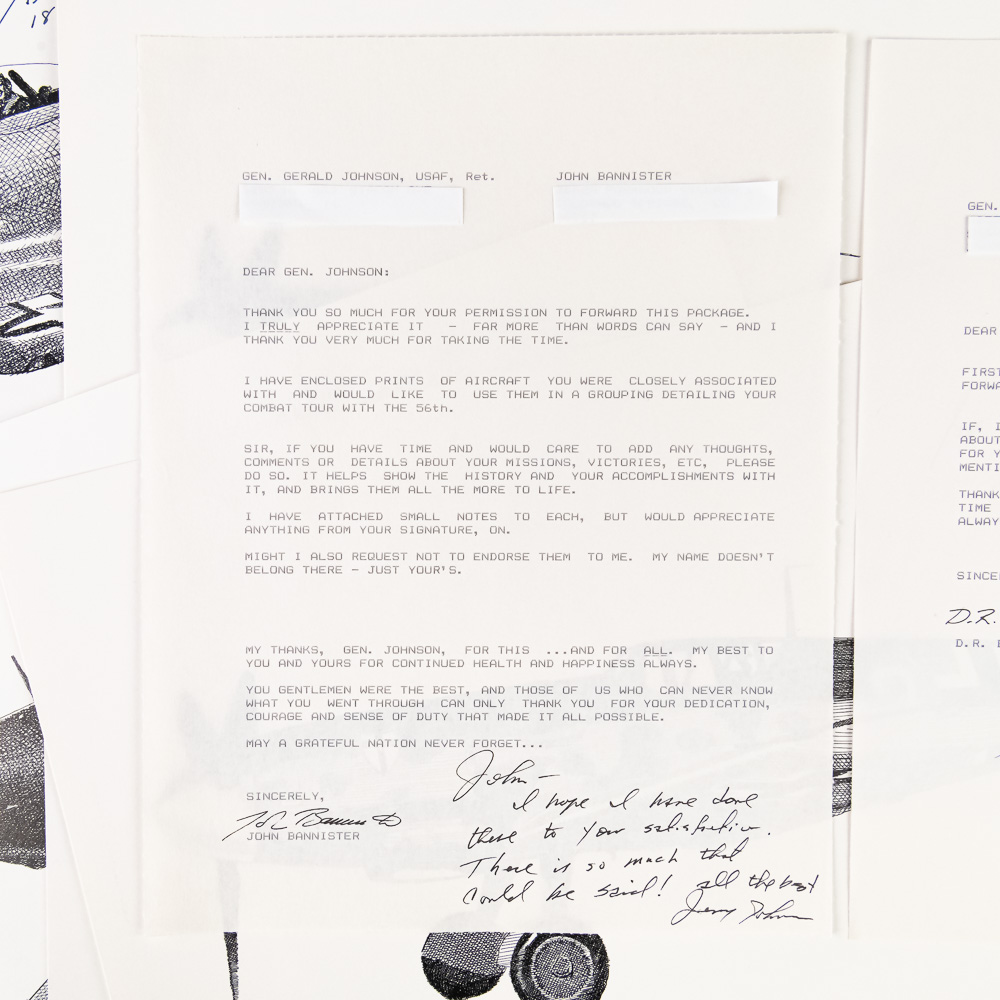 18
GEN. GERALD JOHNSON, USAF, Ret.
JOHN BANNISTER
DEAR GEN. JOHNSON:
THANK YOU SO MUCH FOR YOUR PERMISSION TO FORWARD THIS PACKAGE.
I TRULY APPRECIATE IT - FAR MORE THAN WORDS CAN SAY - AND I
THANK YOU VERY MUCH FOR TAKING THE TIME.
I HAVE ENCLOSED PRINTS OF AIRCRAFT YOU WERE CLOSELY ASSOCIATED
WITH AND WOULD LIKE TO USE THEM IN A GROUPING DETAILING YOUR
COMBAT TOUR WITH THE 56th.
SIR, IF YOU HAVE TIME AND WOULD CARE TO ADD ANY THOUGHTS,
COMMENTS OR DETAILS ABOUT YOUR MISSIONS, VICTORIES, ETC, PLEASE
DO SO. IT HELPS SHOW THE HISTORY AND YOUR ACCOMPLISHMENTS WITH
IT, AND BRINGS THEM ALL THE MORE TO LIFE.
I HAVE ATTACHED SMALL NOTES TO EACH, BUT WOULD APPRECIATE
ANYTHING FROM YOUR SIGNATURE, ON.
MIGHT I ALSO REQUEST NOT TO ENDORSE THEM TO ME. MY NAME DOESN'T
BELONG THERE - JUST YOUR'S.
MY THANKS, GEN. JOHNSON, FOR THIS ...AND FOR ALL. MY BEST TO
YOU AND YOURS FOR CONTINUED HEALTH AND HAPPINESS ALWAYS.
YOU GENTLEMEN WERE THE BEST, AND THOSE OF US WHO CAN NEVER KNOW
WHAT YOU WENT THROUGH CAN ONLY THANK YOU FOR YOUR DEDICATION,
COURAGE AND SENSE OF DUTY THAT MADE IT ALL POSSIBLE.
MAY A GRATEFUL NATION NEVER FORGET...
SINCERELY,
John Bannister
JOHN BANNISTER
John -
I hope I have done
these to your satisfaction.
There is so much that
could be said! all the best
Jerry Johnson
GEN.
DEAR
FIRST
FORWA
IF, I
ABOUT
FOR Y
MENTI
THANK
TIME
ALWAY
SINCE
D.R.
D.R.